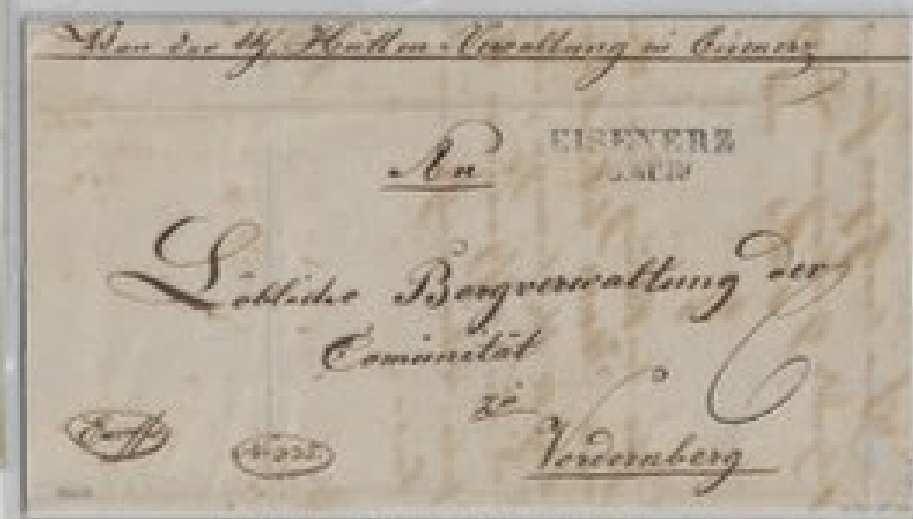 Von der Hütten-Verwaltung in Eisenerz
EISENERZ
An
Löbliche Bergverwaltung der
Comunität
zu
Vordernberg